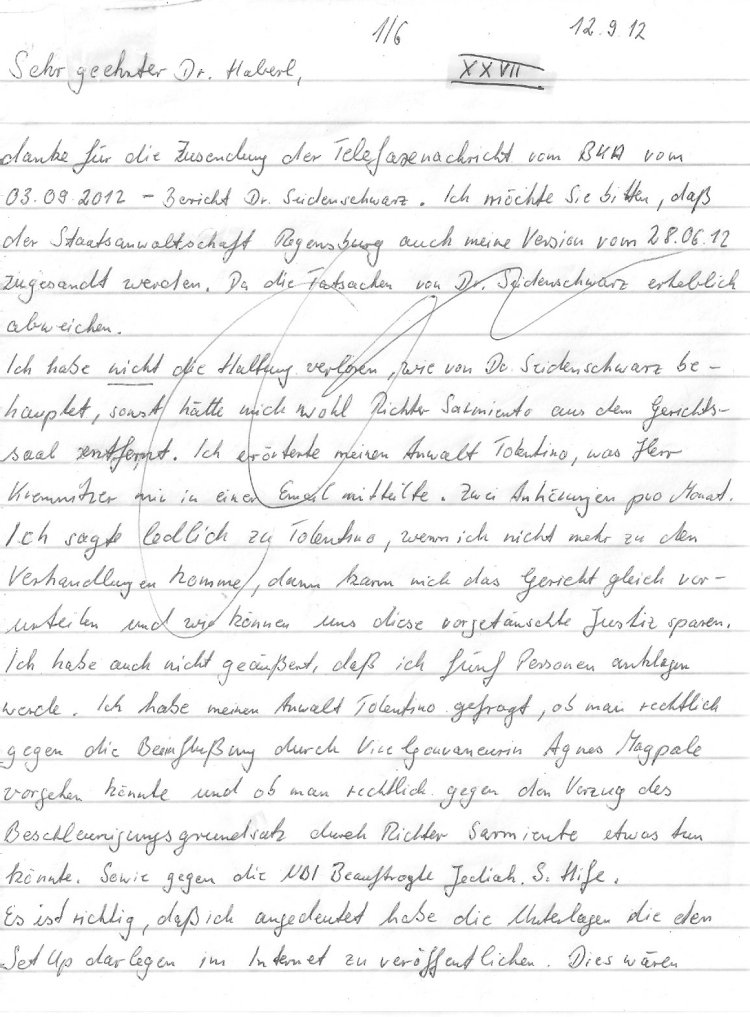 1/6 12.9.12
Sehr geehrter Dr. Haberl,
XXVII
danke für die Zusendung der Telefaxenachricht vom BKA vom
03.09 2012 – Bericht Dr. Seidenschwarz. Ich möchte Sie bitten, daß
der Staatsanwaltschaft Regensburg auch meine Version vom 28.06.12
zugesandt werden. Da die Tatsachen von Dr. Seidenschwarz erheblich
abweichen.
Ich habe nicht die Haltung verloren, wie von Dr. Seidenschwarz be-
hauptet, sonst hätte mich wohl Richter Sarmiento aus dem Gerichts-
saal entfernt. Ich erörterte meinen Anwalt Tolentino, was Herr
Kremnitzer mir in einer Email mitteilte. Zwei Anhörungen pro Monat.
Ich sagte ledlich zu Tolentino, wenn ich nicht mehr zu den
Verhandlungen komme, dann kann mich das Gericht gleich ver-
urteilen und wir können uns diese vorgetäuschte Justiz sparen.
Ich habe auch nicht geäußert, daß ich fünf Personen anklagen
werde. Ich habe meinen Anwalt Tolentino gefragt, ob man rechtlich
gegen die Beeinflußung durch Vice Gouvaneurin Agnes Magpale
vorgehen könnte und ob man rechtlich gegen den Verzug des
Beschleunigungsgrundsatz durch Richter Sarmiento etwas tun
könnte. Sowie gegen die NBI Beauftragte Jediah. S. Hife.
Es ist richtig, daß ich angedeutet habe die Unterlagen die den
Set Up darlegen im Internet zu veröffentlichen. Dies wären